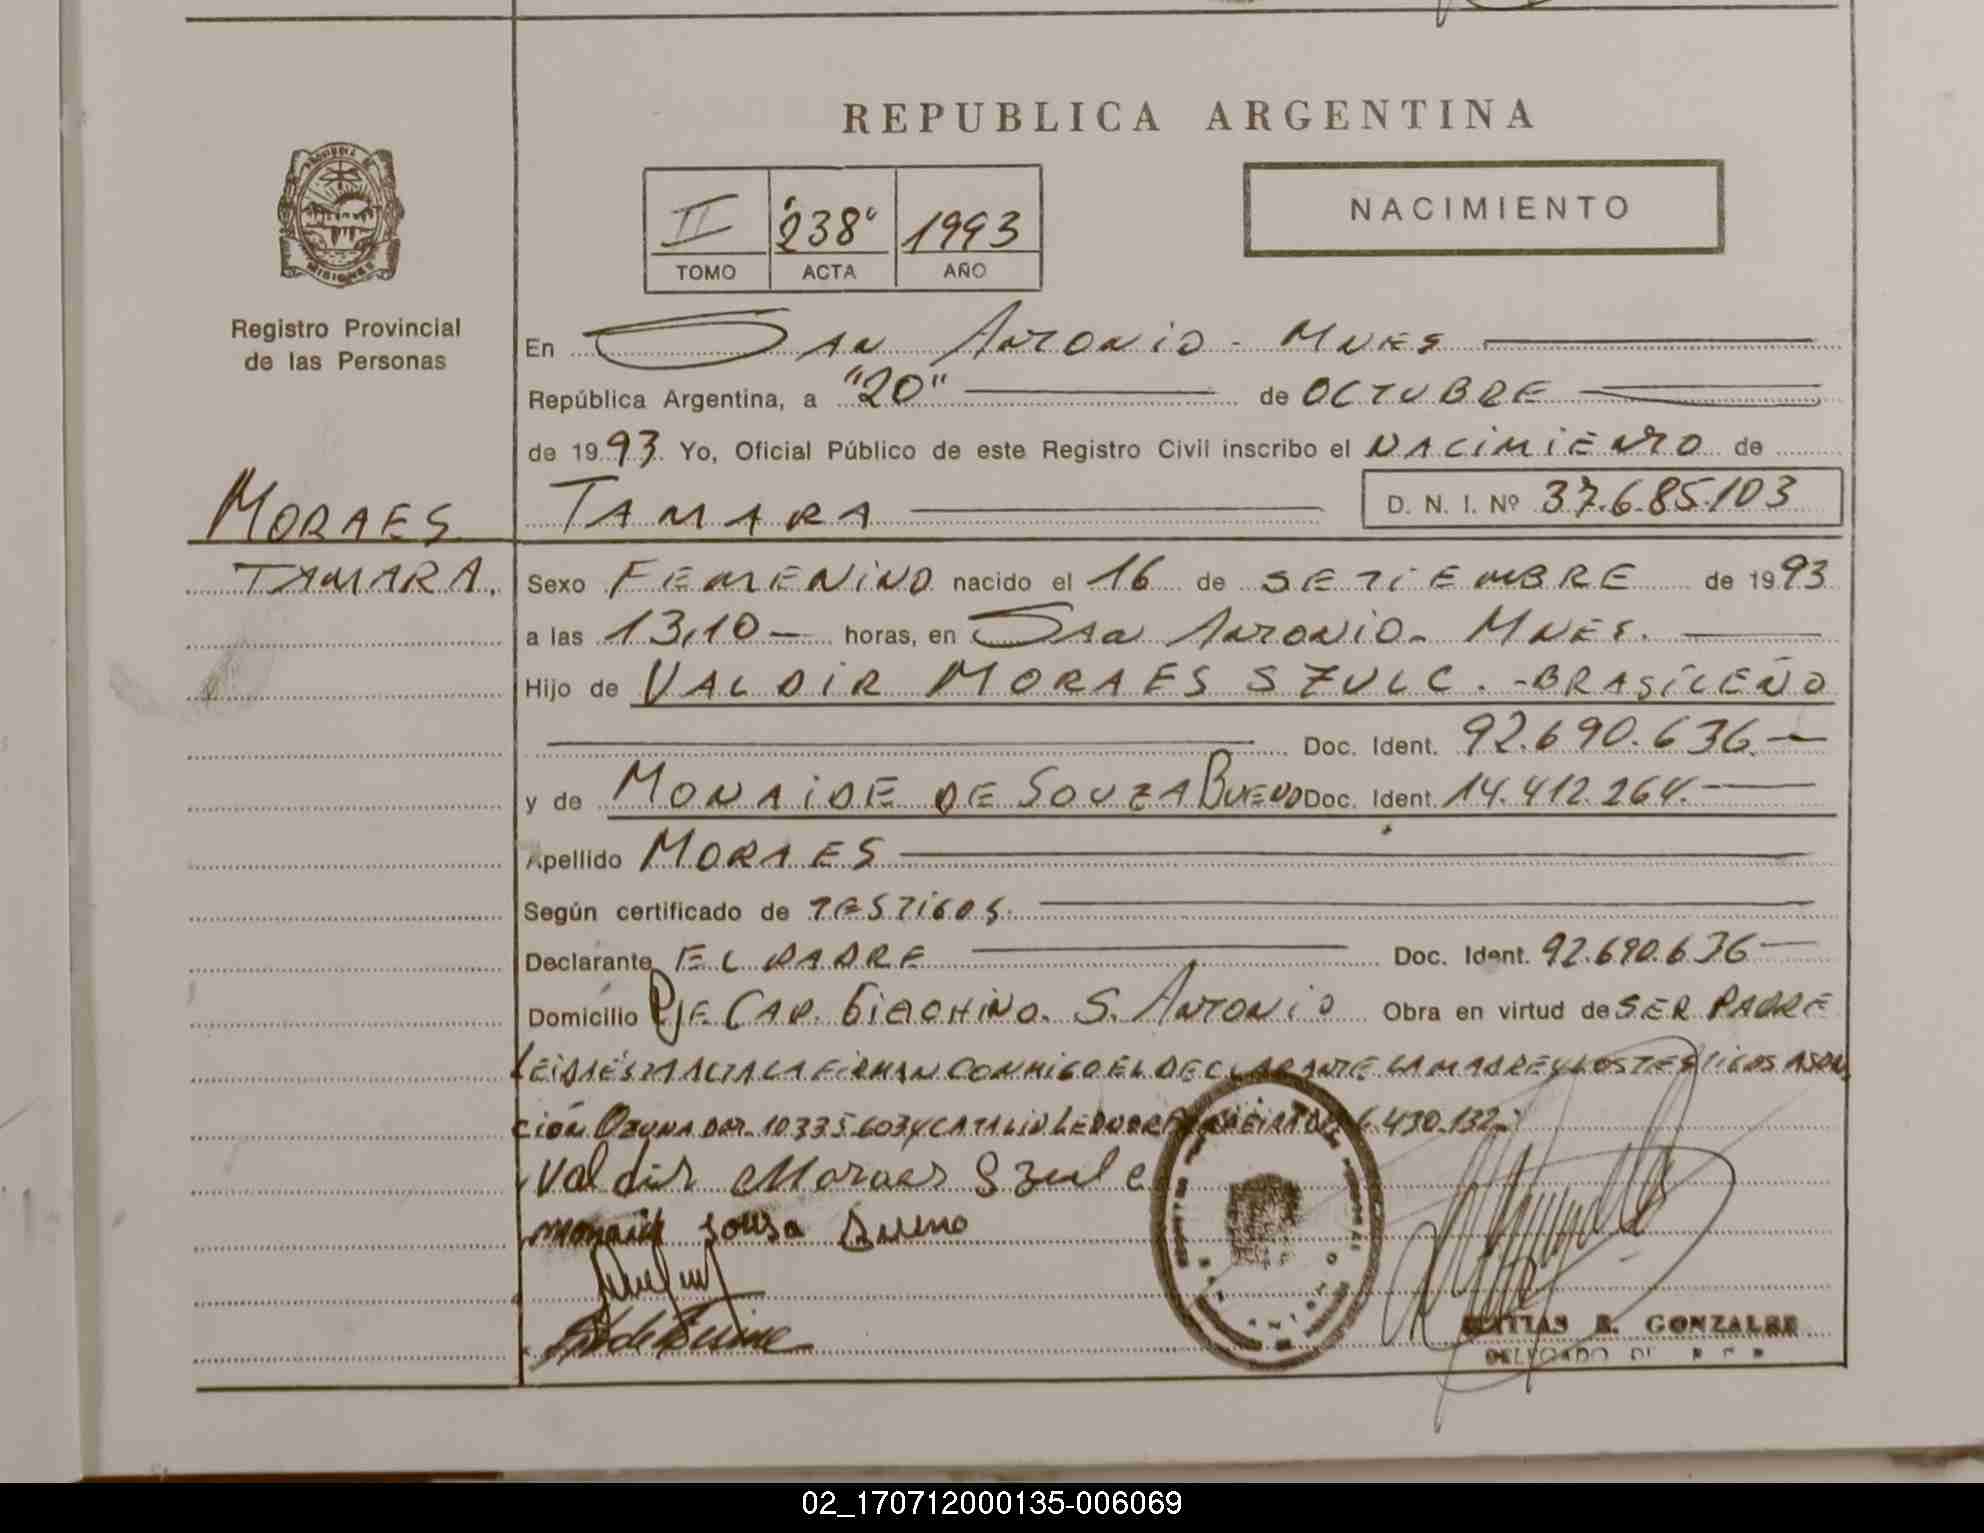 REPUBLICA ARGENTINA
PROVINCIA DE
MISIONES
Registro Provincial
de las Personas
II "238" 1993
TOMO ACTA AÑO
NACIMIENTO
En SAN ANTONIO - MNES
República Argentina, a "20" de OCTUBRE
de 1993 Yo, Oficial Público de este Registro Civil inscribo el NACIMIENTO de
MORAES
TAMARA.
TAMARA D. N. I. Nº 37.685.103
Sexo FEMENINO nacido el 16 de SETIEMBRE de 1993
a las 13,10 horas, en SAN ANTONIO - MNES.
Hijo de VALDIR MORAES SZULC. - BRASILEÑO
Doc. Ident. 92.690.636.
y de MONAIDE DE SOUZA BUENO Doc. Ident. 14.412.264.
Apellido MORAES
Según certificado de TESTIGOS.
Declarante EL PADRE Doc. Ident. 92.690.636
Domicilio PJE CAP. GIACHINO. S. ANTONIO Obra en virtud de SER PADRE
LEIDA ESTA ACTA LA FIRMAN CONMIGO EL DECLARANTE LA MADRE Y LOS TESTIGOS ASUN
CION OZUNA DNI. 10335603 Y CATALINO LEONOR 6.430.132.
Valdir Moraes Szulc
Sousa Bueno
MATIAS R. GONZALEZ
DELEGADO DE R C P
02_170712000135-006069